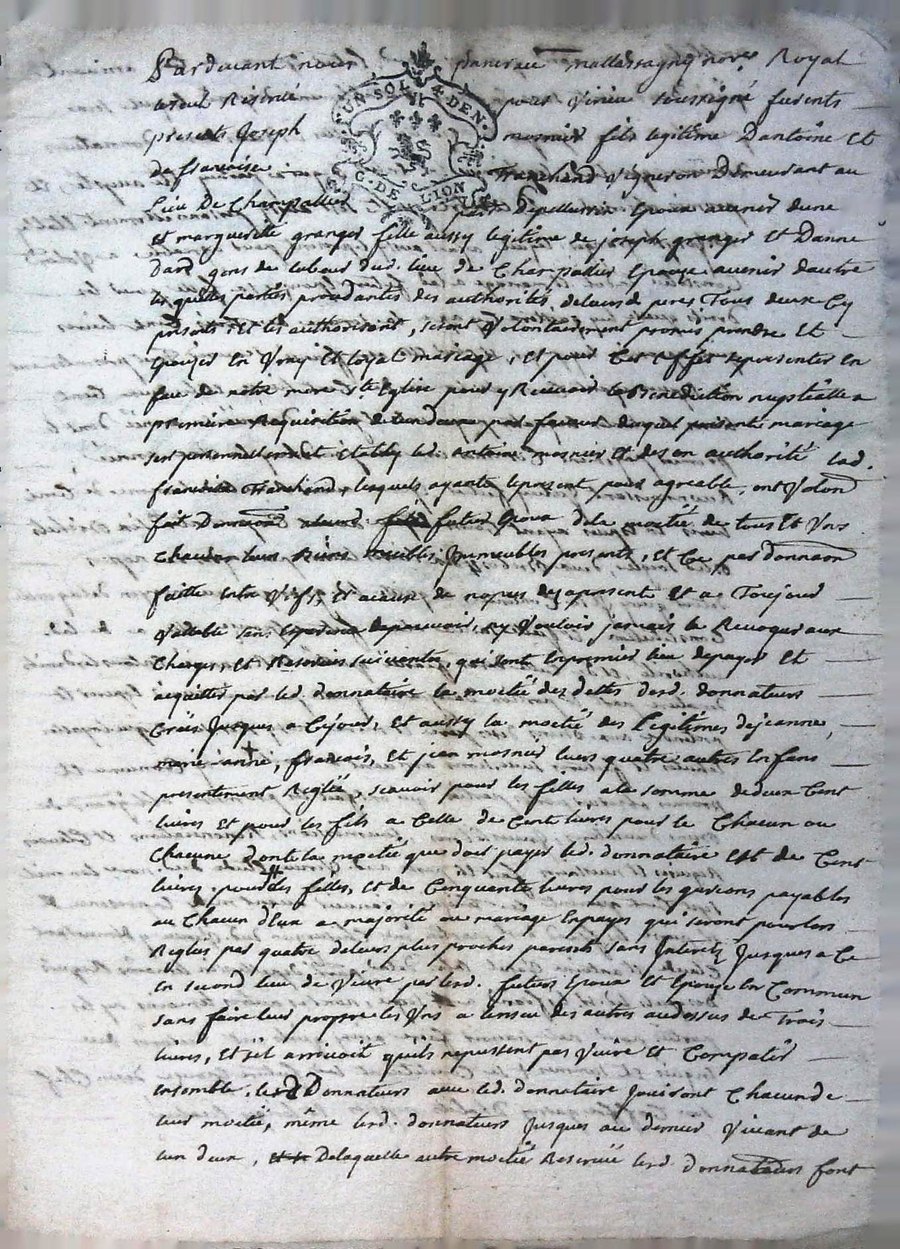 Pardevant nous pancrace mallassagny nore. Royal
Reservé pour virieu soussigné furents
presents Joseph mosnier fils legitime Dantoine Et
de francoise Tranchand vigneron Demeurant au
Lieu De Champallier Epoux avenir dune
UN SOL 4 DEN.
G. DE LION
et marguerite granger fille aussy legitime de joseph granger Et Danne
Dard gens de labour dud. lieu de Champallier Epouze avenir dautre
lesquelles parties procedantes des authorités deleurs d. peres Tous deux Cy
presents Et les authorisant, seront volontairement promis prendre Et
Epouzer En vray Et loyal mariage, Et pour Cet effet se presenter En
face de notre mere Ste Eglise pour y Recevoir la Benediction nuptialle a
premiere Requisition de lun deux par faveur duquel present mariage
sest personnellement Etably led. antoine mosnier Et de son authorité lad.
francoise Tranchand, lesquels ayants lepresent pour agreable, ont volont
fait Donnaon aleurd. fils futur Epoux dela moitié de tous Et Uns
Chacun leurs Biens meubles, Immeubles presents, Et Ce par donnaon
faitte entre vifs, Et acause de nopces dezapresent Et a Toujours
vallable sans Esperance depouvoir, ny vouloir jamais la Revoquer aux
Charges, Et Reserves suivantes, qui sont Enpremier lieu depayer Et
acquitter par led. donnataire la moitié des dettes desd. donnateurs
Créés Jusques a Cejour, Et aussy la moitié des Legitimes dejeanne,
marie-anne, francois, Et jean mosnier leurs quatre autres Enfans
presentement Reglée, scavoir pour les filles ala somme dedeux Cent
livres Et pour les fils a Celle de Cent livres pour le Chacun ou
Chacune, dont la moitié que doit payer led. donnataire Est de Cent
livres pour les filles, Et de Cinquante livres pour les garcons payables
au Chacun dEux a majorité ou mariage Enpayes qui seront pourlors
Reglés par quatre deleurs plus proches parents sans Interetz Jusques a Ce
En second lieu de vivre par lesd. futurs Epoux Et Epouze En Commun
sans faire leur propre les Uns a linscu des autres audessus de Trois
livres, Et sil arrivoit quils nepussent pas vivre Et Compatir
ensemble, lesd Donnateurs avec led. donnataire Jouiront Chacun de
leur moitié, même lesd. donnateurs Jusques au dernier vivant de
lun deux, Delaquelle autre moitié Reservée lesd. donnateurs font